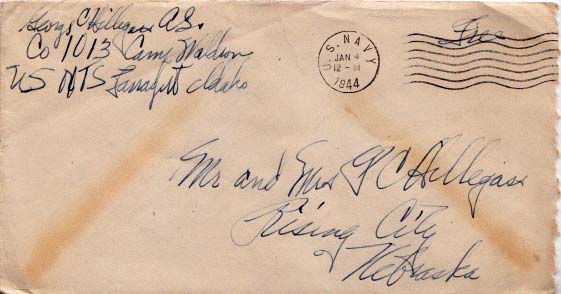 George C Hillegass A.S.
Co 1013 Camp Waldron
US NTS Farragut Idaho
U.S. NAVY
JAN 4
12-M
1944
Free
Mr and Mrs P C Hillegass
Rising City
Nebraska